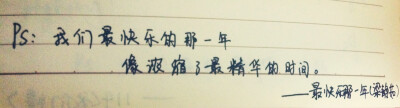 PS: 我们最快乐的那一年
像浓缩了最精华的时间。
——最快乐那一年(梁静茹)